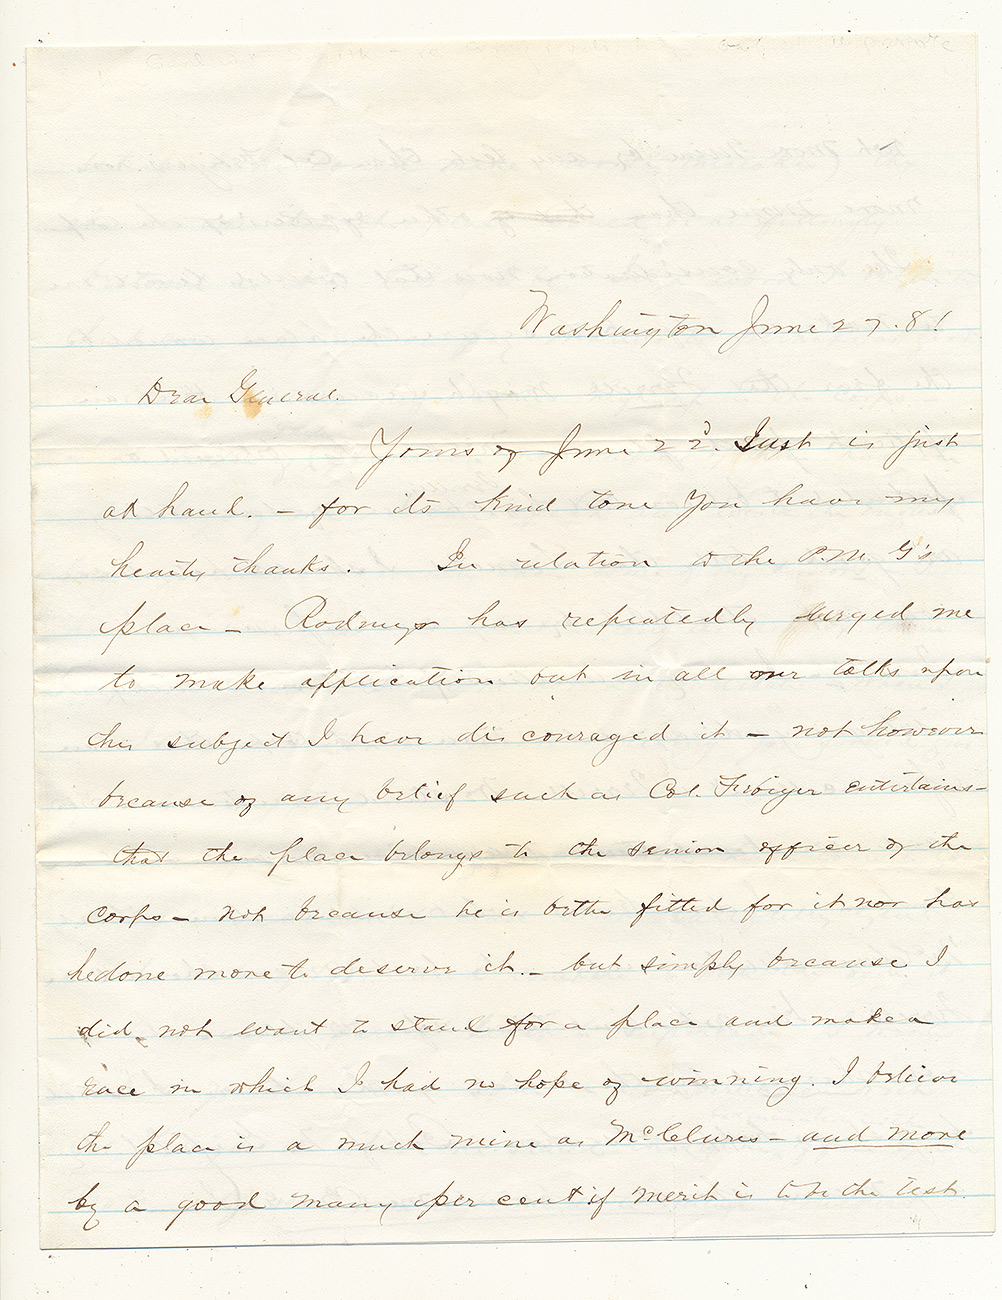 Washington June 27. 81
Dear General.
Yours of June 22d. Inst is just
at hand. – for its kind tone you have my
hearty thanks. In relation to the P.M. G's
place – Rodneys has repeatedly urged me
to make application but in all our talks upon
this subject I have discouraged it – not however
because of any belief such as Col. entertains –
that the place belongs to the senior officer of the
corps – not because he is better fitted for it nor has
he done more to deserve it. – but simply because I
did not want to stand for a place and make a
race in which I had no hope of winning. I believe
the place is a much mine as McClures – and more
by a good many per cent if merit is to be the test.